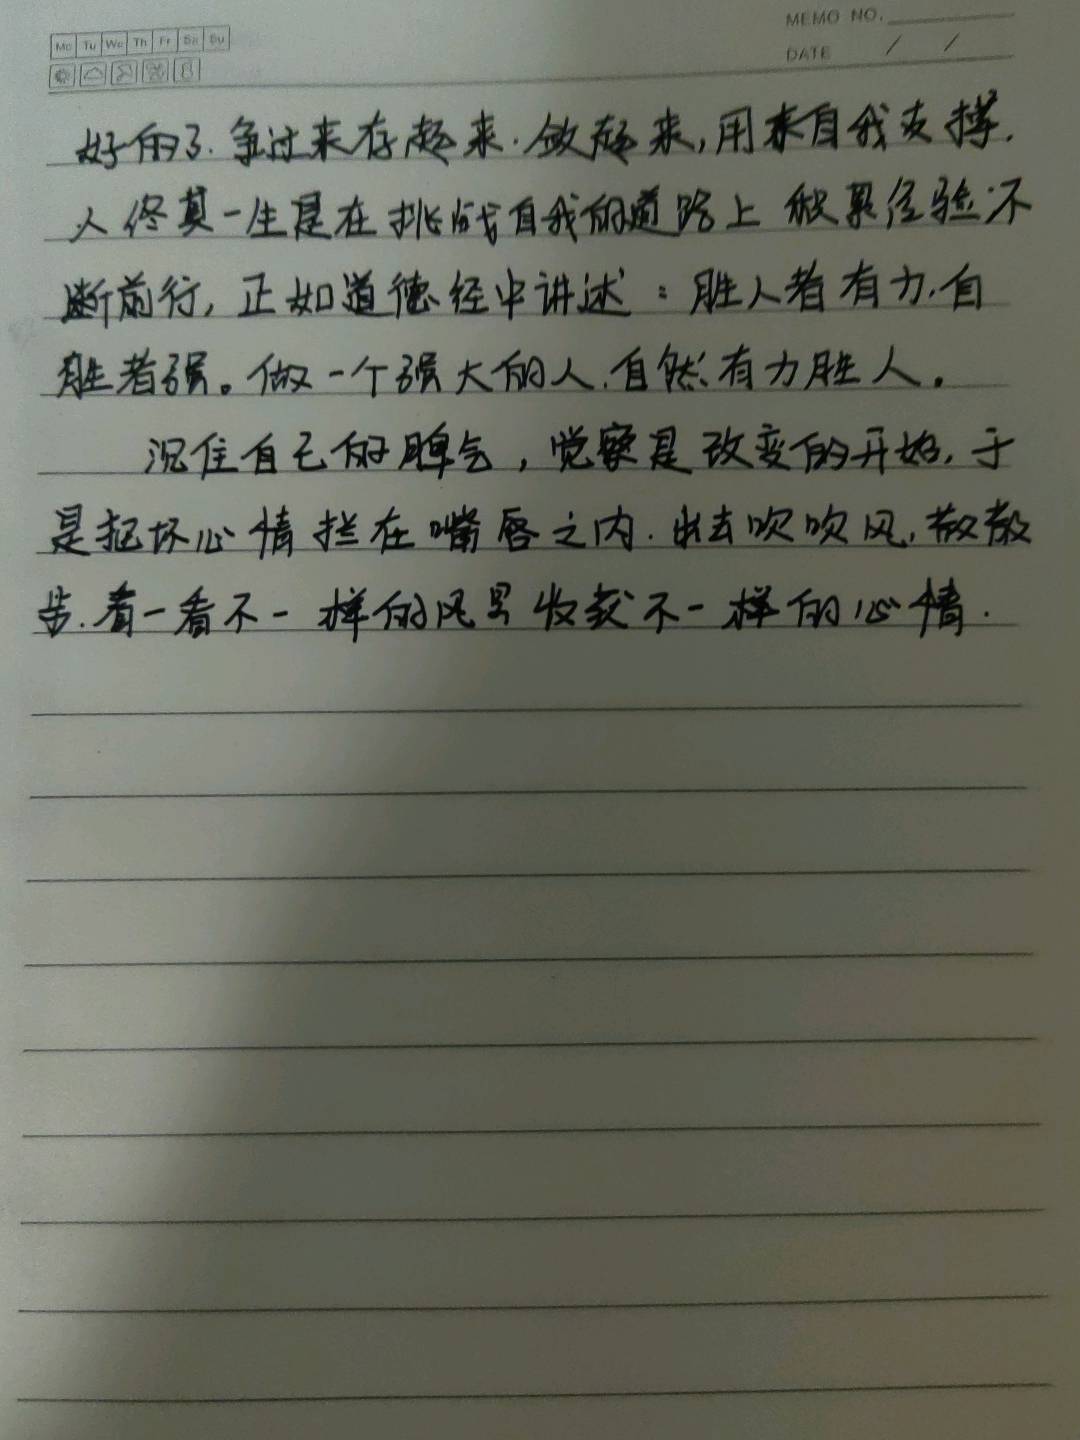 MEMO NO.
Mo Tu We Th Fr Sa Su
DATE / /
好的了.争过来存起来.做起来,用来自我支撑.
人终其一生是在挑战自我的道路上积累经验不
断前行,正如道德经中讲述:胜人者有力.自
胜者强。做一个强大的人.自然有力胜人。
沉住自己的脾气,觉察是改变的开始.于
是把坏心情拦在嘴唇之内.出去吹吹风,散散
步.看一看不一样的风景收获不一样的心情.